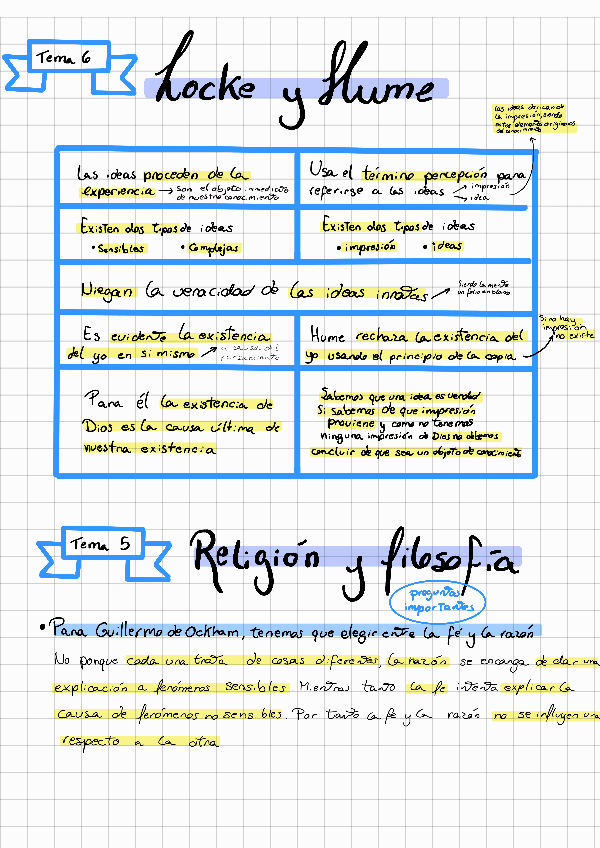 Tema 6
Locke y Hume
Las ideas derivan de
la impresión, siendo
estos elementos originarios
de conocimiento
Las ideas proceden de la
experiencia → son el objeto inmediato
de nuestro conocimiento
Usa el término percepción para
referirse a las ideas → impresión
→ idea
Existen dos tipos de ideas
• Sensibles • Complejas
Existen dos tipos de ideas
• impresión • ideas
Niegan la veracidad de las ideas innatas → Siendo la mente
un folio en blanco
Es evidente la existencia
del yo en si mismo →
Hume rechaza la existencia del
yo usando el principio de la copia
Si no hay
impresión
no existe
Para él la existencia de
Dios es la causa última de
nuestra existencia
Sabemos que una idea es verdad
Si sabemos de que impresión
proviene y como no tenemos
ninguna impresión de Dios no debemos
concluir de que sea un objeto de conocimiento
Tema 5
Religión y filosofía
preguntas
importantes
• Para Guillermo de Ockham, tenemos que elegir entre la fé y la razón
No porque cada una trata de cosas diferentes, la razón se encarga de dar una
explicación a fenómenos sensibles Mientras tanto la fe intenta explicar la
causa de fenómenos no sensibles. Por tanto la fe y la razón no se influyen una
respecto a la otra